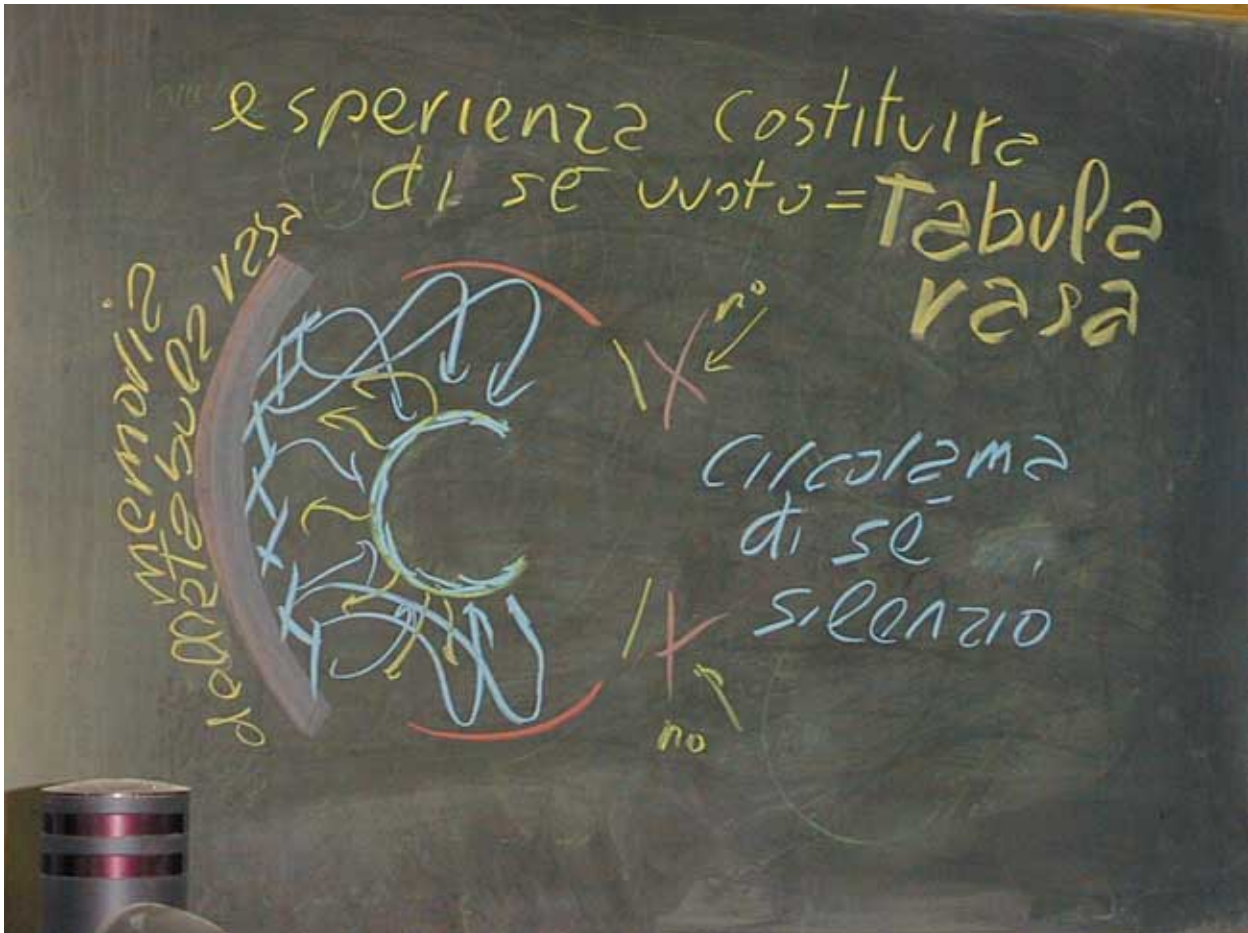 esperienza costituita
di sé vuoto = Tabula
rasa
memoria
della tabula rasa
no
circolama
di sé
silenzio
no